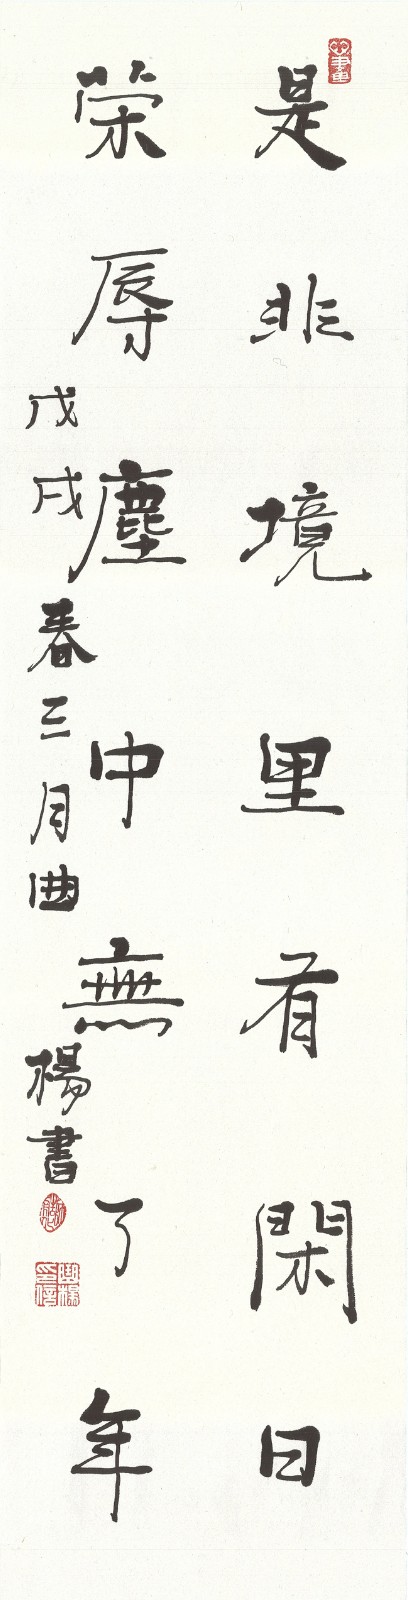 是非境里有閑日
榮辱塵中無了年
戊戌春三月曲楊書